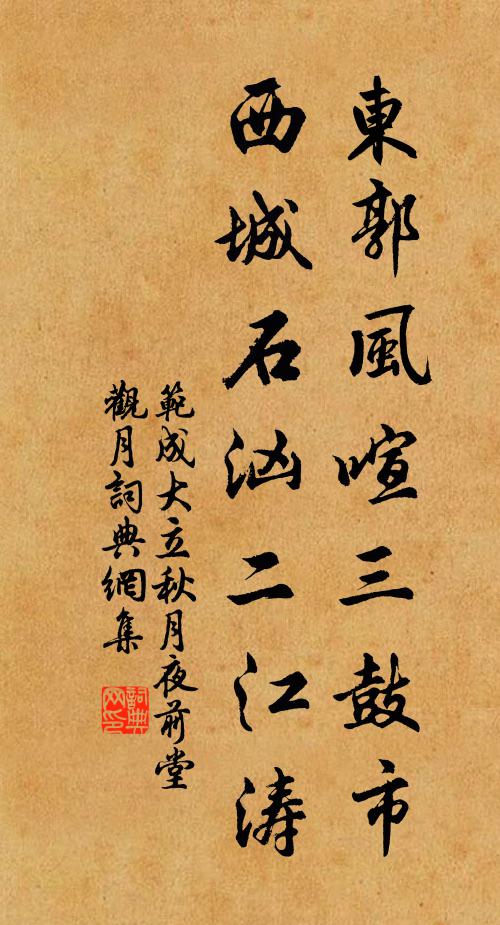 東郭風喧三鼓市
西城石汹二江涛
範成大立秋月夜前堂
觀月詞典網集
詞典
网印